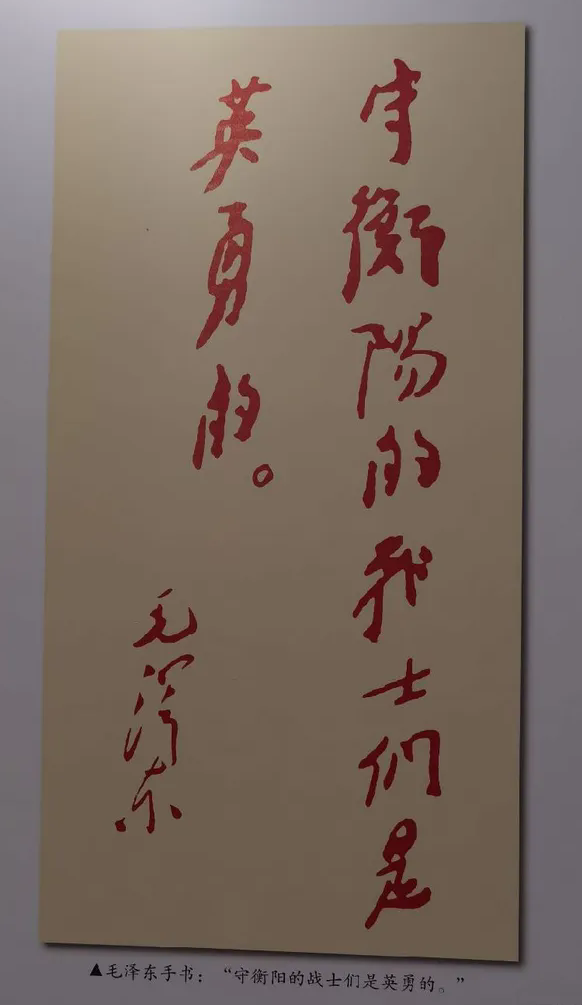 守衡陽的战士们是
英勇的。
毛泽东
▲毛泽东手书：“守衡阳的战士们是英勇的。”